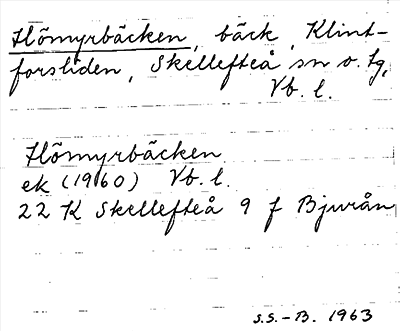 Hömyrbäcken, bäck, Klint-
forsliden, Skellefteå sn o. tg,
Vb. l.
Hömyrbäcken
ek (1960) Vb. l.
22 K Skellefteå 9 f Bjurån
S.S.-B. 1963